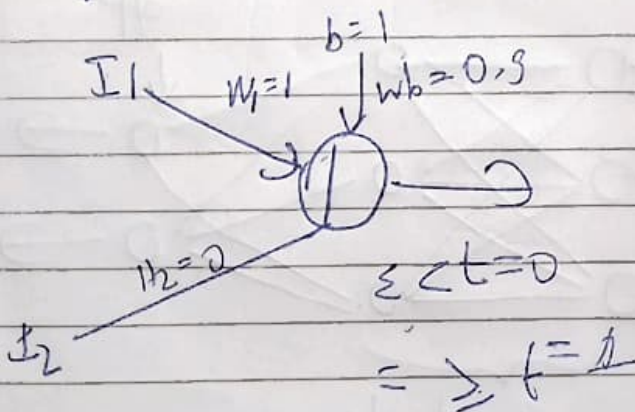 b=1
I1 W1=1 Wb=0,9
W2=0
Σ<t=0
I2
= ≥ t=1